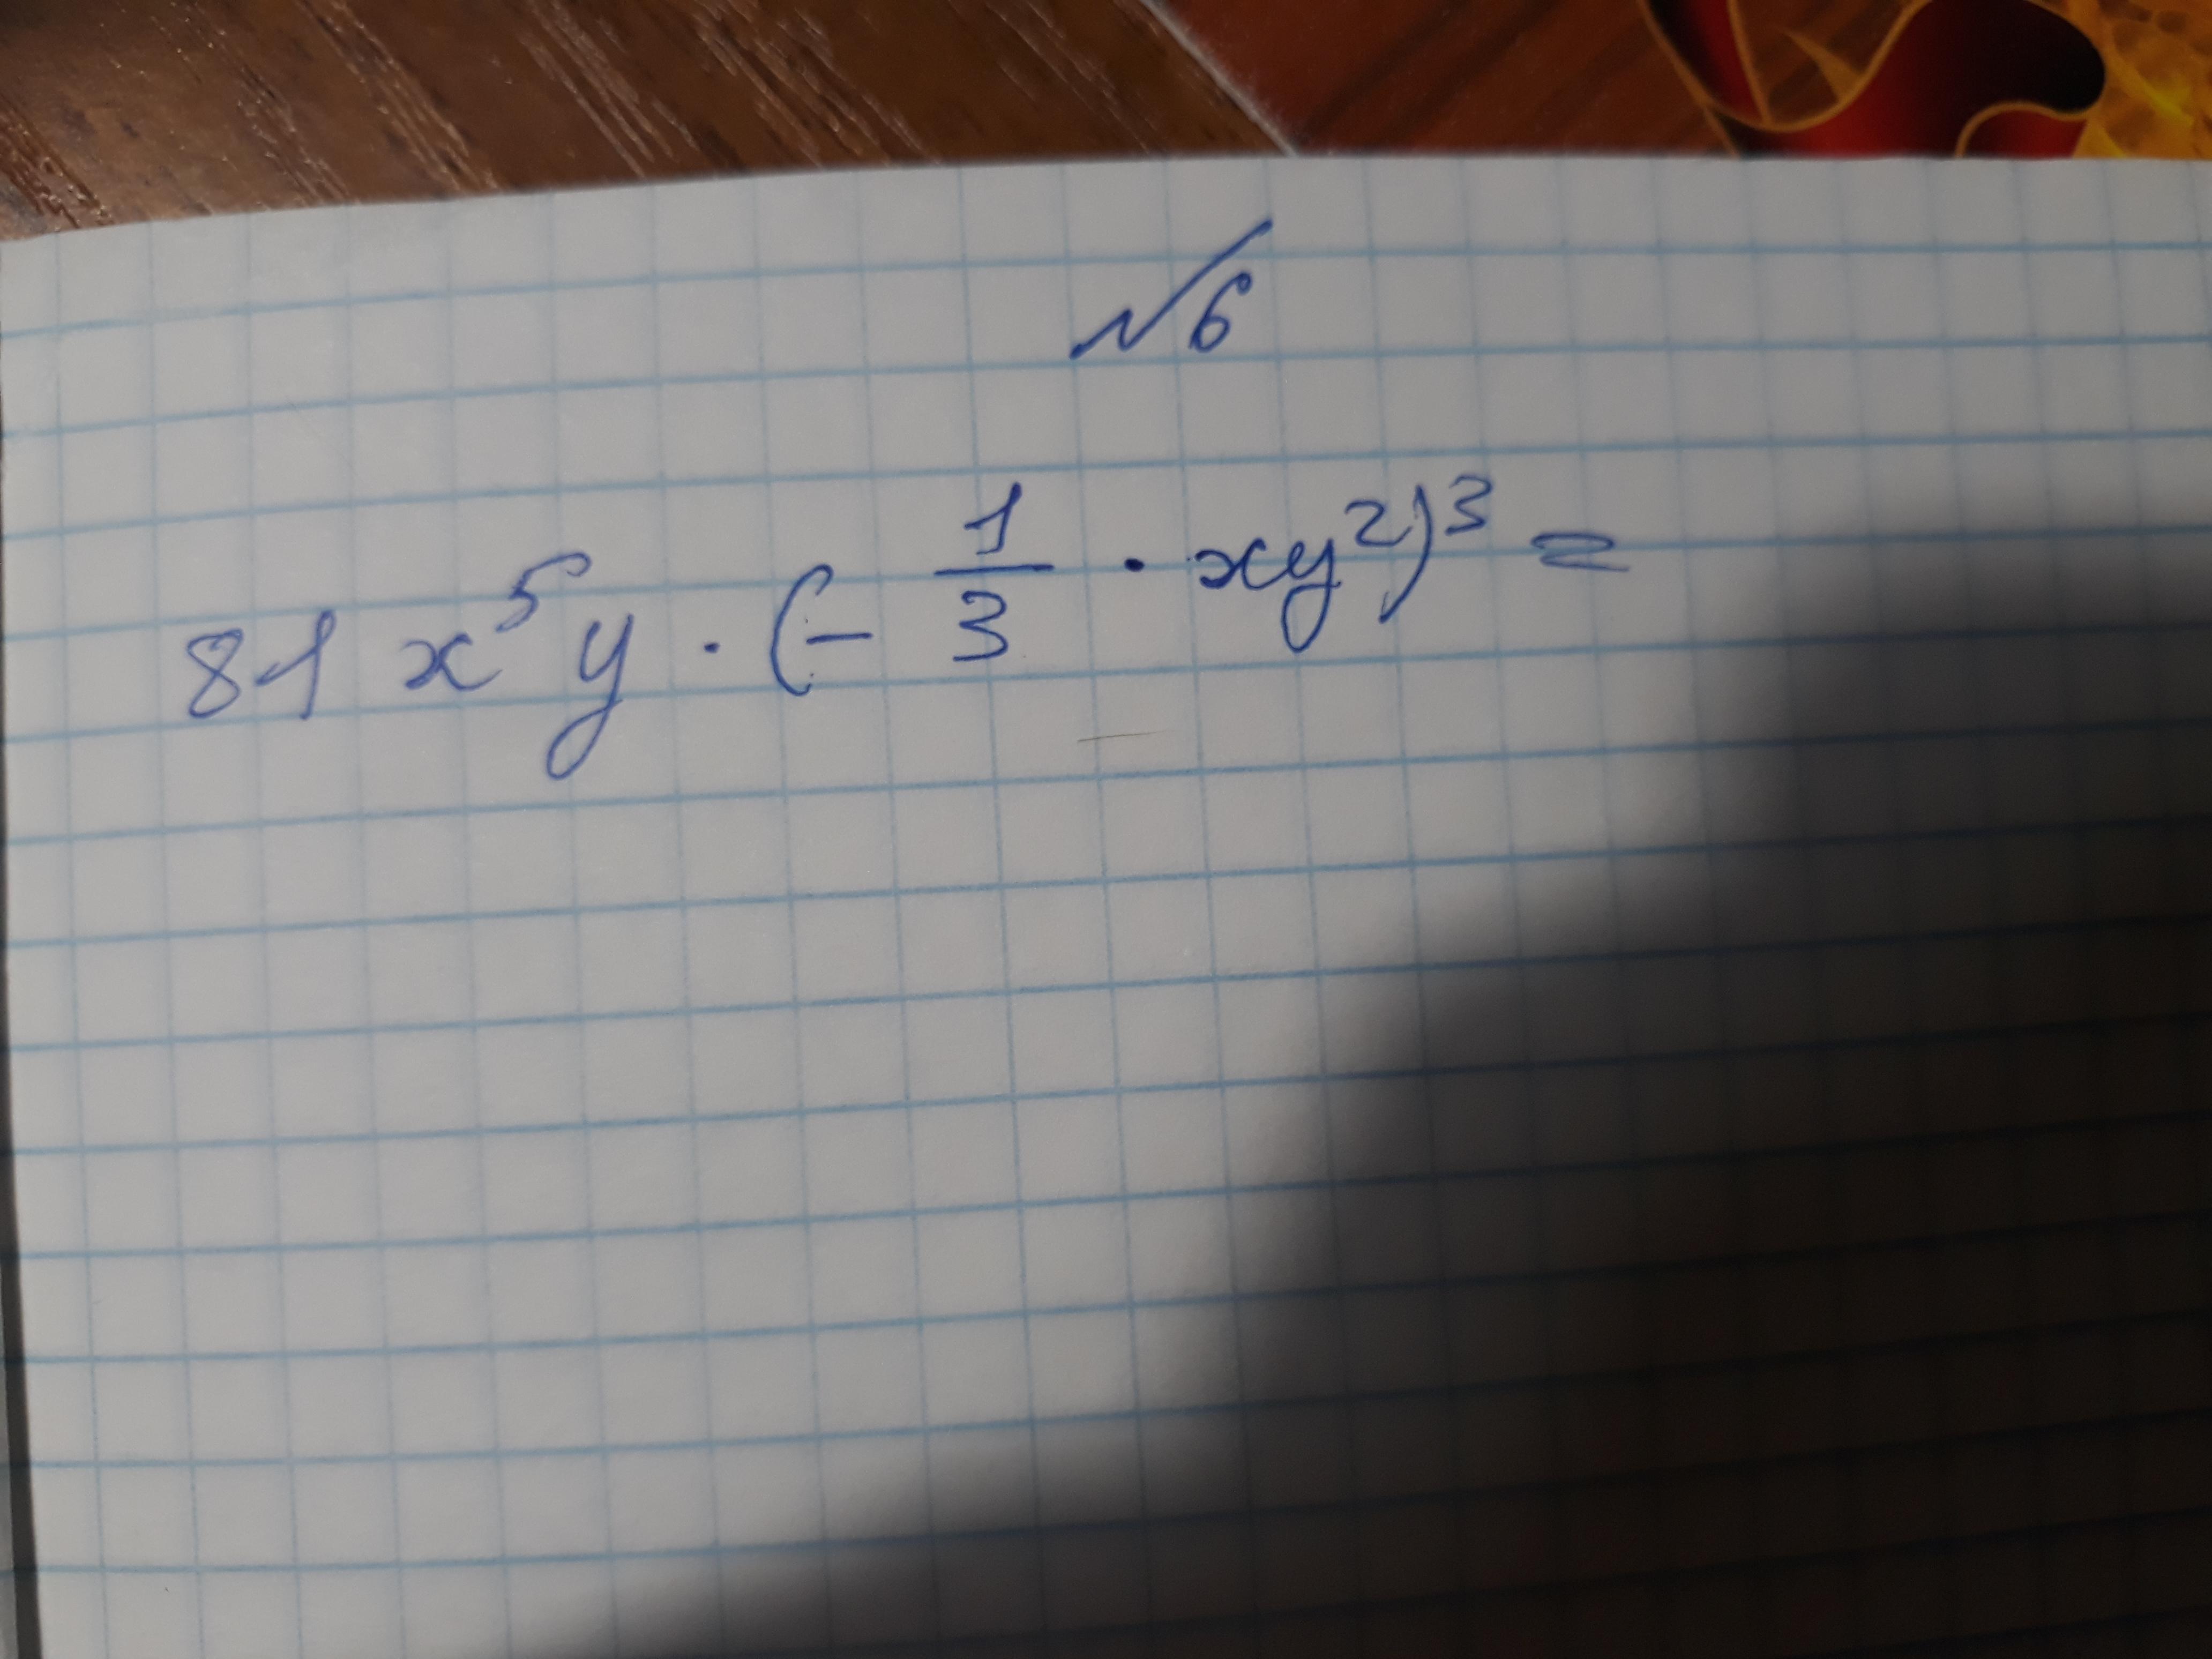 №6
81 x⁵y · (- 1/3 · xy²)³ =